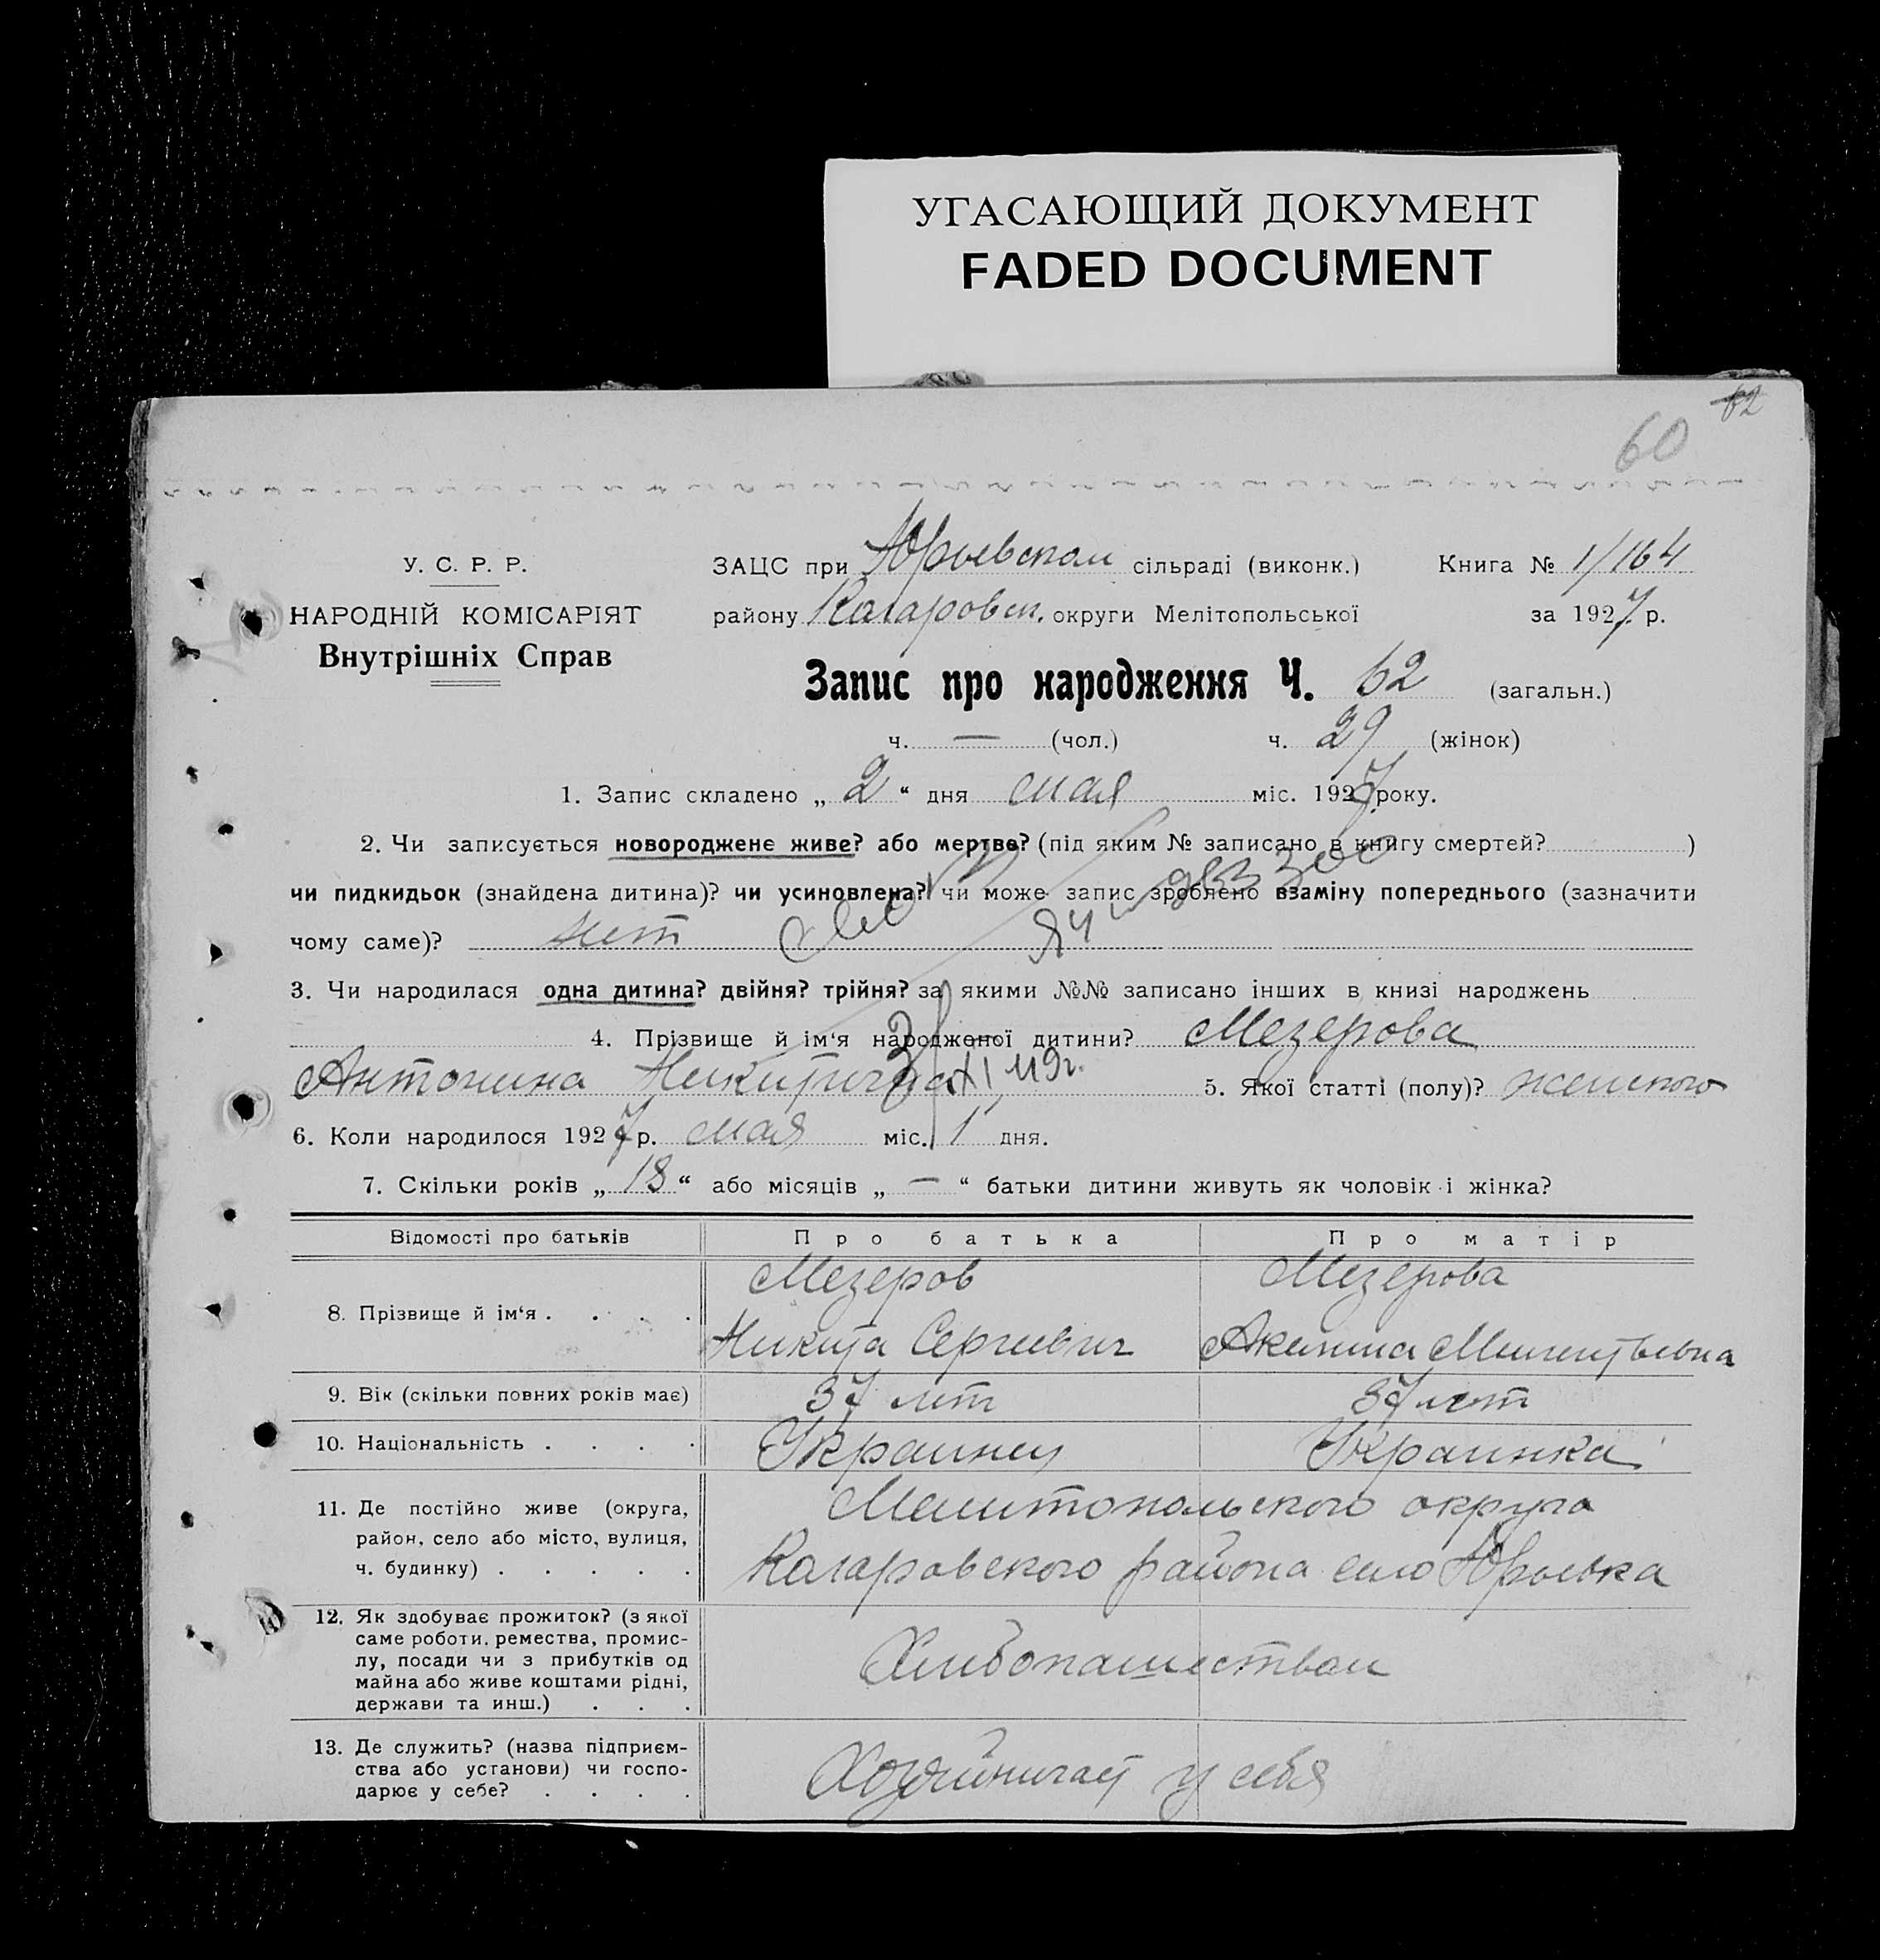 УГАСАЮЩИЙ ДОКУМЕНТ
FADED DOCUMENT
62
60
У. С. Р. Р.
НАРОДНІЙ КОМІСАРІЯТ
Внутрішніх Справ
ЗАЦС при Юрьевском сільраді (виконк.) Книга № 1/164
району округи Мелітопольської за 1927 р.
Запис про народження Ч. 62 (загальн.)
ч. — (чол.) ч. 29 (жінок)
1. Запис складено „ 2 “ дня мая міс. 1927 року.
2. Чи записується новороджене живе? або мертве? (під яким № записано в книгу смертей? )
чи пидкидьок (знайдена дитина)? чи усиновлена? чи може запис зроблено взаміну попереднього (зазначити
чому саме)? нет
3. Чи народилася одна дитина? двійня? трійня? за якими №№ записано інших в книзі народжень
4. Прізвище й ім‘я народженої дитини? Мезерова
Антонина Никитична 5. Якої статті (полу)? женского
6. Коли народилося 1927 р. мая міс. 1 дня.
7. Скільки років „ 18 “ або місяців „ — “ батьки дитини живуть як чоловік і жінка?
Відомості про батьків Про батька Про матір
8. Прізвище й ім‘я . . . . Мезеров Мезерова
Никита Сергеевич Акилина
9. Вік (скільки повних років має) 37 лет 37 лет
10. Національність . . . . Украинец Украинка
11. Де постійно живе (округа,
район, село або місто, вулиця,
ч. будинку) . . . . .
Мелитопольского округа
района село Юрьевка
12. Як здобуває прожиток? (з якої
саме роботи, ремества, промис-
лу, посади чи з прибутків од
майна або живе коштами рідні,
держави та инш.) . . .
Хлебопашеством
13. Де служить? (назва підприєм-
ства або установи) чи госпо-
дарює у себе? . . . .
Хозяйничает у себя